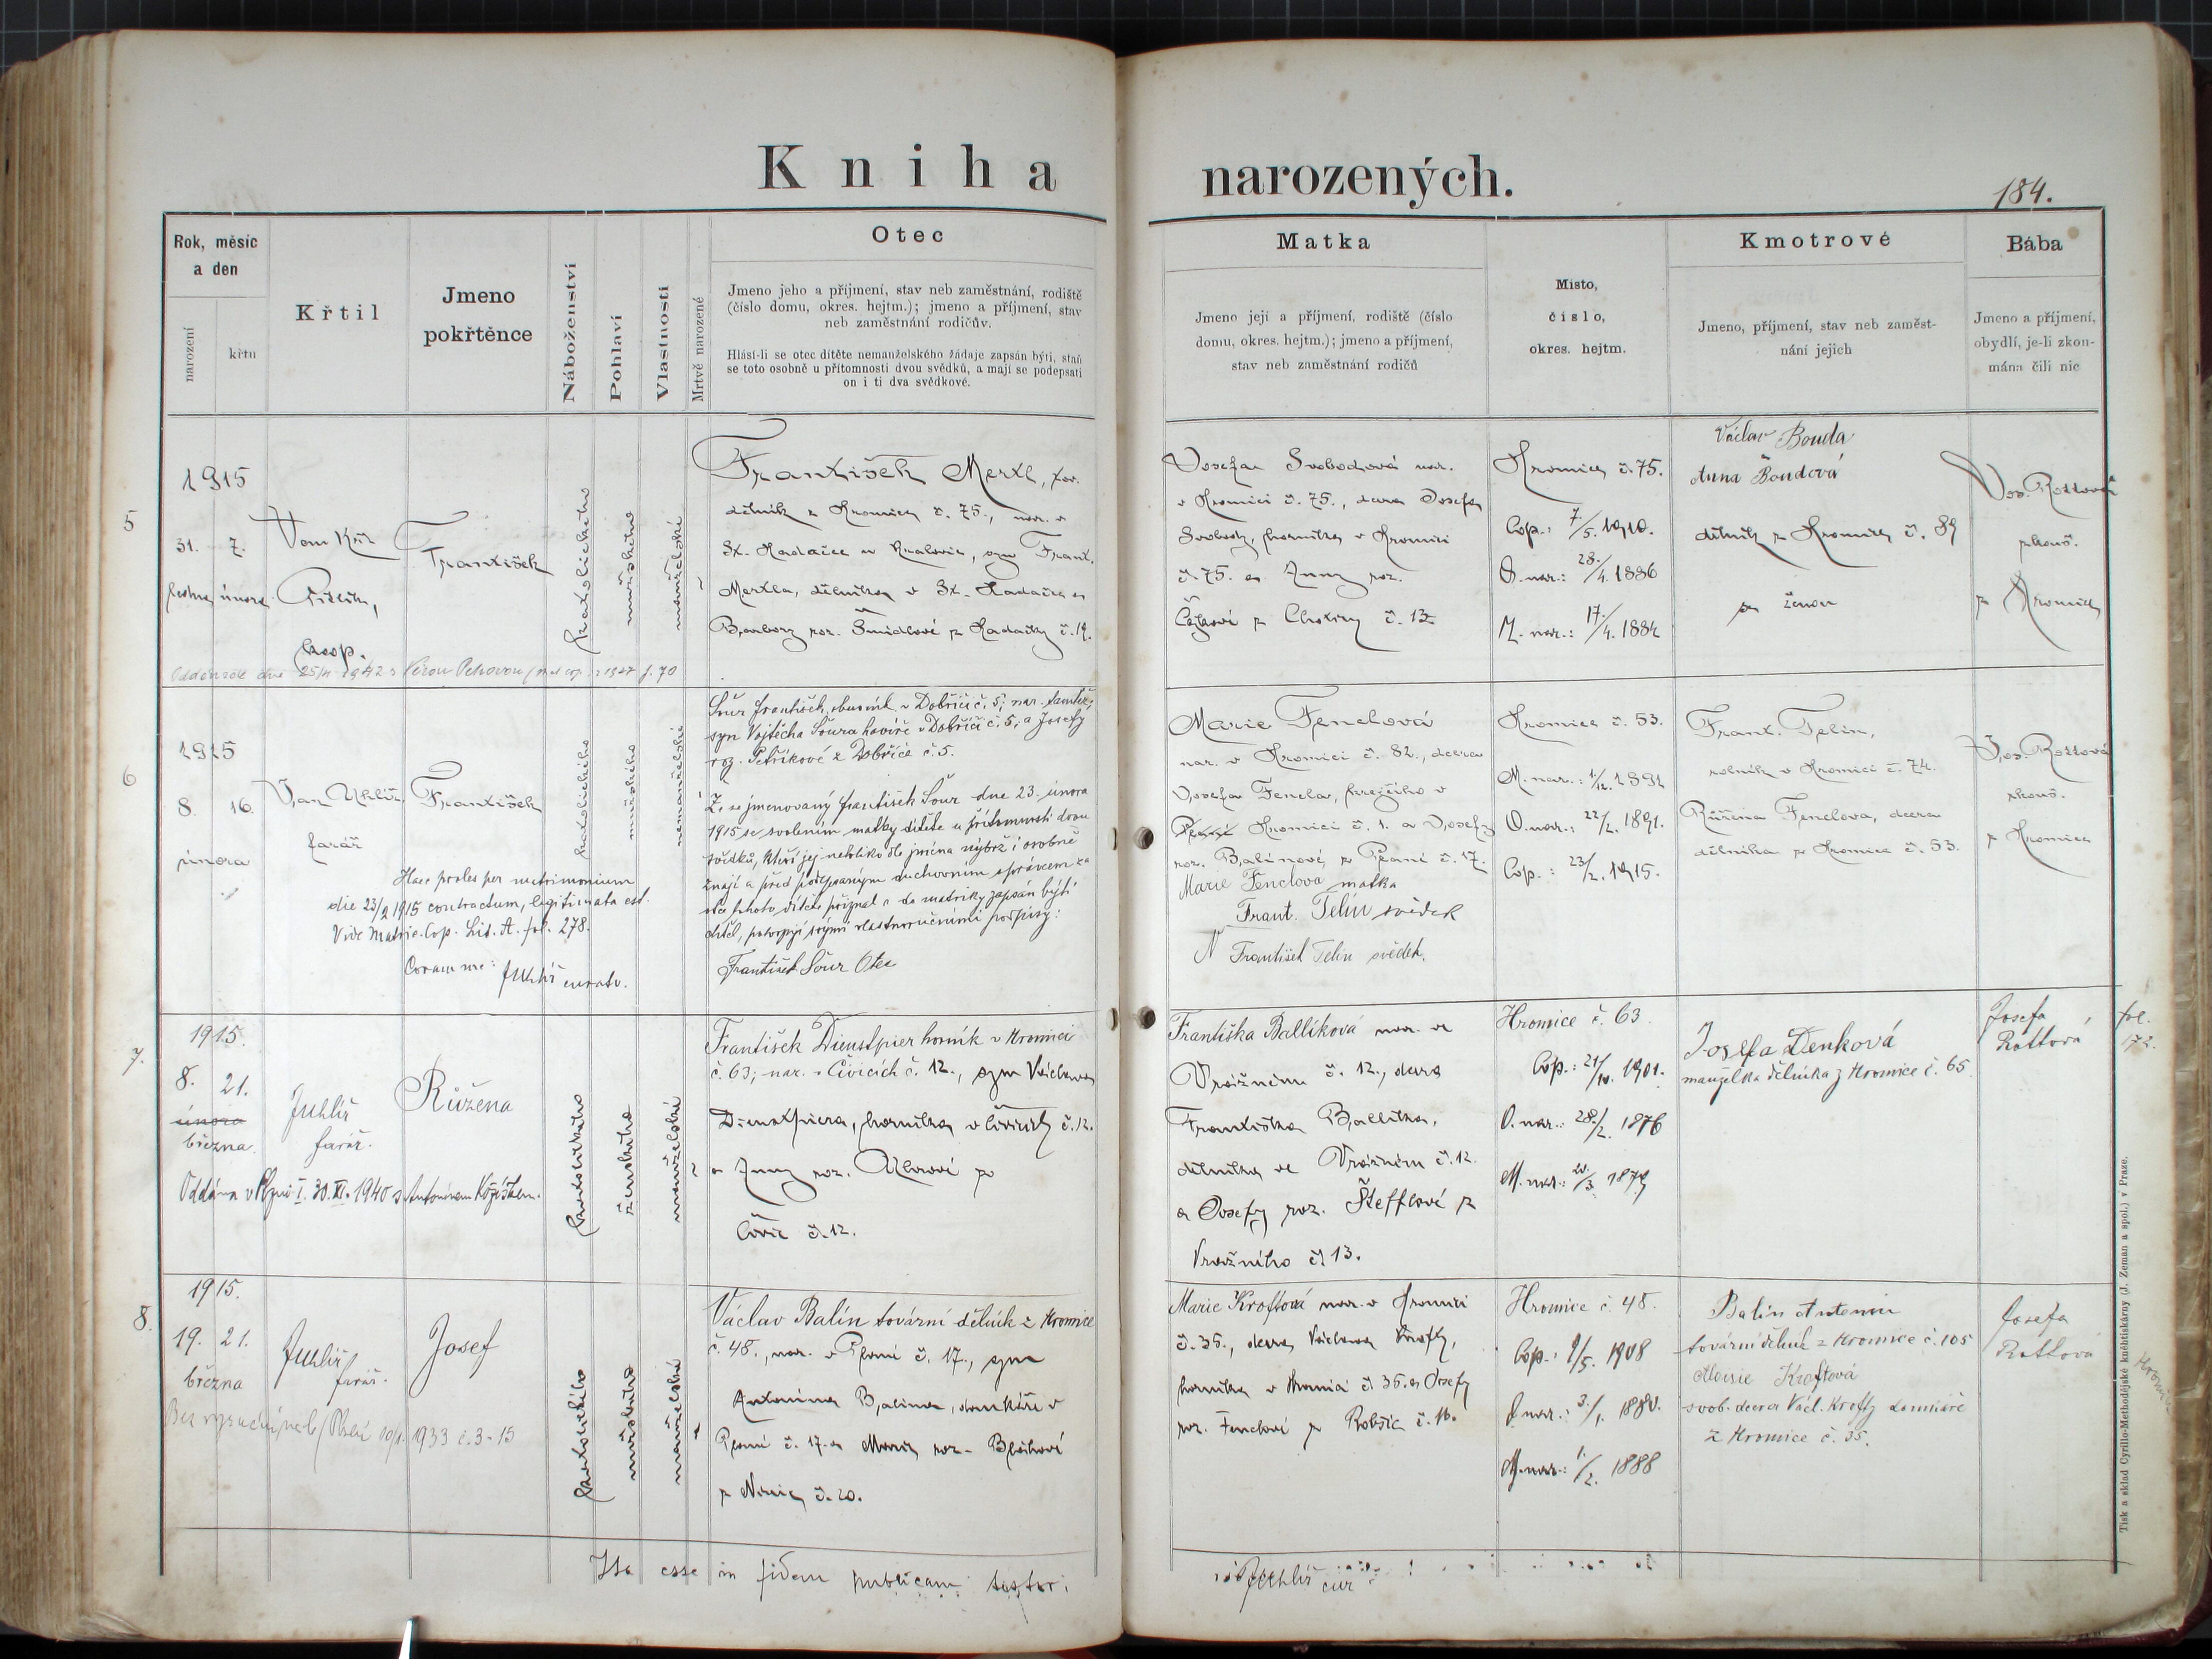 Kniha narozených.
184.
Rok, měsíc
a den
narození
křtu
Křtil
Jmeno
pokřtěnce
Náboženství
Pohlaví
Vlastnosti
Mrtvě narozené
Otec
Jmeno jeho a příjmení, stav neb zaměstnání, rodiště
(číslo domu, okres. hejtm.); jmeno a příjmení, stav
neb zaměstnání rodičův.
Hlásí-li se otec dítěte nemanželského žádaje zapsán býti, staň
se toto osobně u přítomnosti dvou svědků, a mají se podepsati
on i ti dva svědkové.
Matka
Jmeno její a příjmení, rodiště (číslo
domu, okres. hejtm.); jmeno a příjmení,
stav neb zaměstnání rodičů
Místo,
číslo,
okres. hejtm.
Kmotrové
Jmeno, příjmení, stav neb zaměst-
nání jejich
Bába
Jmeno a příjmení,
obydlí, je-li zkou-
mána čili nic
5
1915
31. 7.
ledna února
koop.
František
katolického
mužského
manželské
František Merxl, tov.
dělník z Hromice č. 75., nar. v
Hadačce u Kralovic, syn Frant.
Merxla, dělníka v Hadačce a
Barbory roz. Šmidlové z Hadačky č. 19.
Josefa Svobodová nar.
v Hromici č. 75., dcera Josefa
Svobody, horníka v Hromici
č. 75. a Anny roz.
z Chotiny č. 13.
Hromice č. 75.
Cop.: 7./5. 1910.
O. nar.: 28./4. 1886
M. nar.: 17./4. 1884
Václav Bouda
Anna Boudová
dělník z Hromice č. 89
se ženou
Jos. Rottová
zkouš.
z Hromice
dne 25/4 1942 s Věrou
6
1915
8. 16.
února
Jan Uhlíř,
farář
František
katolického
mužského
nemanželské
Haec proles per matrimonium
die 23/2 1915 contractum, legitimata est.
Vide Matric. Cop. Lit. A. fol. 278.
Coram me: JUhlíř curato.
Šour František, v Dobříči č. 5; nar. tamtéž,
syn Vojtěcha Šoura havíře v Dobříči č. 5, a Josefy
roz. Petříkové z Dobříče č. 5.
Že se jmenovaný František Šour dne 23. února
1915 se svolením matky dítěte u přítomnosti dvou
svědků, kteří jej netoliko dle jména nýbrž i osobně
znají a před podepsaným duchovním správcem za
otce tohoto dítěte přiznal a do matriky zapsán býti
chtěl, potvrzují svými vlastnoručními podpisy:
František Šour Otec
Marie Fenclová
nar. v Hromici č. 82., dcera
Josefa Fencla, v
Hromici č. 1. a Josefy
roz. Balínové z Plané č. 17.
Marie Fenclova matka
Frant. Telín svědek
František Telín svědek.
Hromice č. 53.
M. nar.: 1/12. 1891
O. nar.: 22/2. 1891.
Cop.: 23/2. 1915.
Frant. Telín,
rolník v Hromici č. 74.
Růžena Fenclova, dcera
dělníka z Hromice č. 53.
Jos. Rottová
zkouš.
z Hromice
7.
1915.
8. 21.
února
března
JUhlíř
farář.
Růžena
katolického
ženského
manželské
Oddána v Plzni I. 30. XI. 1940 s Antonínem
František Dienstpier horník v Hromici
č. 63; nar. v Čivicích č. 12., syn Václava
Dienstpiera, horníka v Čivicích č. 12.
a Anny roz. z
Čivic č. 12.
Františka Ballíková nar. ve
Vrážném č. 12., dcera
Františka Ballíka,
dělníka ve Vrážném č. 12.
a Josefy roz. Štefflové z
Vrážného č. 13.
Hromice č. 63.
Cop.: 21/10. 1901.
O. nar.: 28./2. 1876
M. nar.: 20./3. 1879
Josefa Denková
manželka dělníka z Hromice č. 65
Josefa
Rottová
fol.
172.
8.
1915.
19. 21.
března
JUhlíř
farář.
Josef
katolického
mužského
manželské
1933 č. 3-15
Václav Balín tovární dělník z Hromice
č. 48., nar. v Plané č. 17., syn
Antonína Balína, domkáře v
Plané č. 17. a Marie roz.
z Nynic č. 20.
Marie Kroftová nar. v Hromici
č. 35., dcera Václava Krofty,
horníka v Hromici č. 35. a Josefy
roz. Fenclové z Robšic č. 16.
Hromice č. 48.
Cop.: 9/5. 1908
O. nar.: 3./1. 1880.
M. nar.: 1./2. 1888
Balín Antonín
tovární dělník z Hromice č. 105
Aloisie Kroftová
svob. dcera Václ. Krofty domkáře
z Hromice č. 35.
Josefa
Rottová
Hromice
Ita esse in fidem publicam testor:
JUhlíř cur
Tisk a sklad Cyrillo-Methodějské knihtiskárny (J. Zeman a spol.) v Praze.